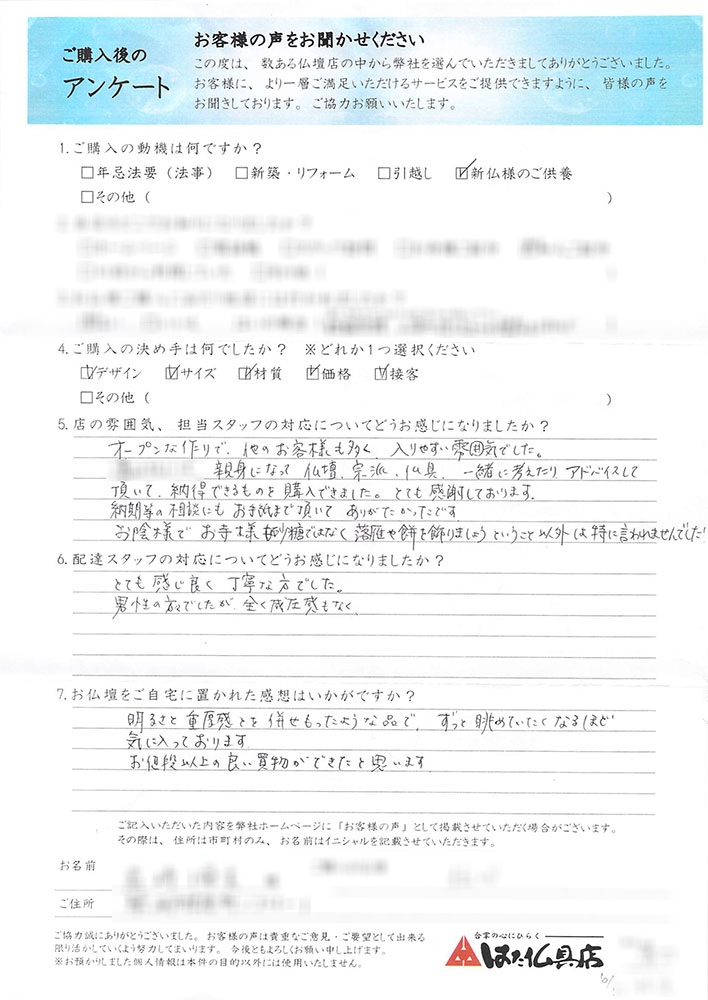 ご購入後の
アンケート
お客様の声をお聞かせください
この度は、数ある仏壇店の中から弊社を選んでいただきましてありがとうございました。
お客様に、より一層ご満足いただけるサービスをご提供できますように、皆様の声を
お聞きしております。ご協力お願いいたします。
1.ご購入の動機は何ですか?
□年忌法要(法事) □新築・リフォーム □引越し ☑新仏様のご供養
□その他( )
4.ご購入の決め手は何でしたか? ※どれか1つ選択ください
☑デザイン ☑サイズ ☑材質 ☑価格 ☑接客
□その他( )
5.店の雰囲気、担当スタッフの対応についてどうお感じになりましたか?
オープンな作りで、他のお客様も多く、入りやすい雰囲気でした。
親身になって 仏壇、宗派、仏具、一緒に考えたり アドバイスして
頂いて、納得できるものを購入できました。とても感謝しております。
納期等の相談にも お手紙まで頂いて ありがたかったです
お陰様で お寺様も砂糖ではなく 落雁や餅を飾りましょう ということ以外は特に言われませんでした!
6.配達スタッフの対応についてどうお感じになりましたか?
とても 感じ良く 丁寧な方でした。
男性の方でしたが、全く威圧感もなく、
7.お仏壇をご自宅に置かれた感想はいかがですか?
明るさと重厚感とを併せもったような品で、ずっと眺めていたくなるほど
気に入っております。
お値段以上の良い買物ができたと思います。
ご記入いただいた内容を弊社ホームページに「お客様の声」として掲載させていただく場合がございます。
その際は、住所は市町村のみ、お名前はイニシャルを記載させていただきます。
お名前
ご住所
ご協力誠にありがとうございました。お客様の声は貴重なご意見・ご要望として出来る
限り活かしていくよう努力してまいります。今後ともよろしくお願い申し上げます。
※お預かりしました個人情報は本件の目的以外には使用いたしません。
合掌の心にひらく
はた仏具店